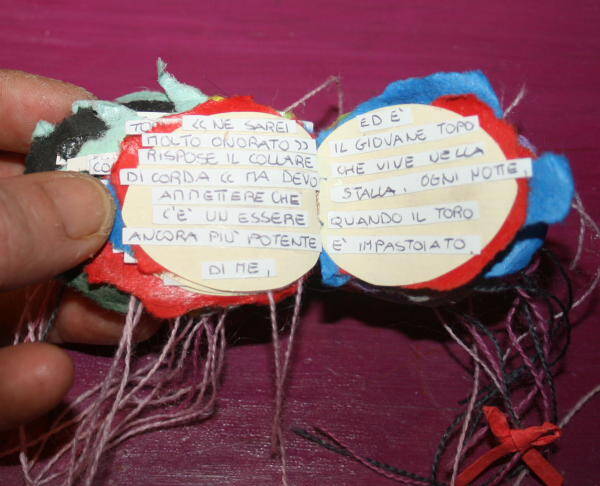 TO
CO
«NE SAREI
MOLTO ONORATO»
RISPOSE IL COLLARE
DI CORDA «MA DEVO
AMMETTERE CHE
C'È UN ESSERE
ANCORA PIÙ POTENTE
DI ME,
ED È
IL GIOVANE TOPO
CHE VIVE NELLA
STALLA. OGNI NOTTE,
QUANDO IL TORO
È IMPASTOIATO,